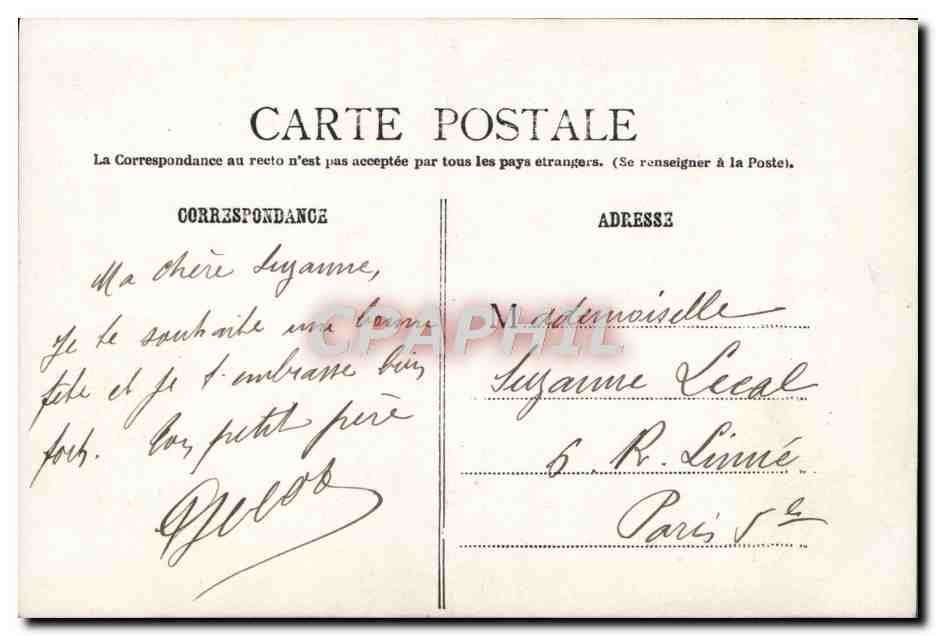 CARTE POSTALE
La Correspondance au recto n'est pas acceptée par tous les pays etrangers. (Se renseigner à la Poste).
CORRESPONDANCE
Ma chère Suzanne,
Je te souhaite une bonne
fête et je t'embrasse bien
fort. Ton petit père
ADRESSE
Mademoiselle
Suzanne Lecal
6. R. Linné
Paris 5e
CPAPHIL